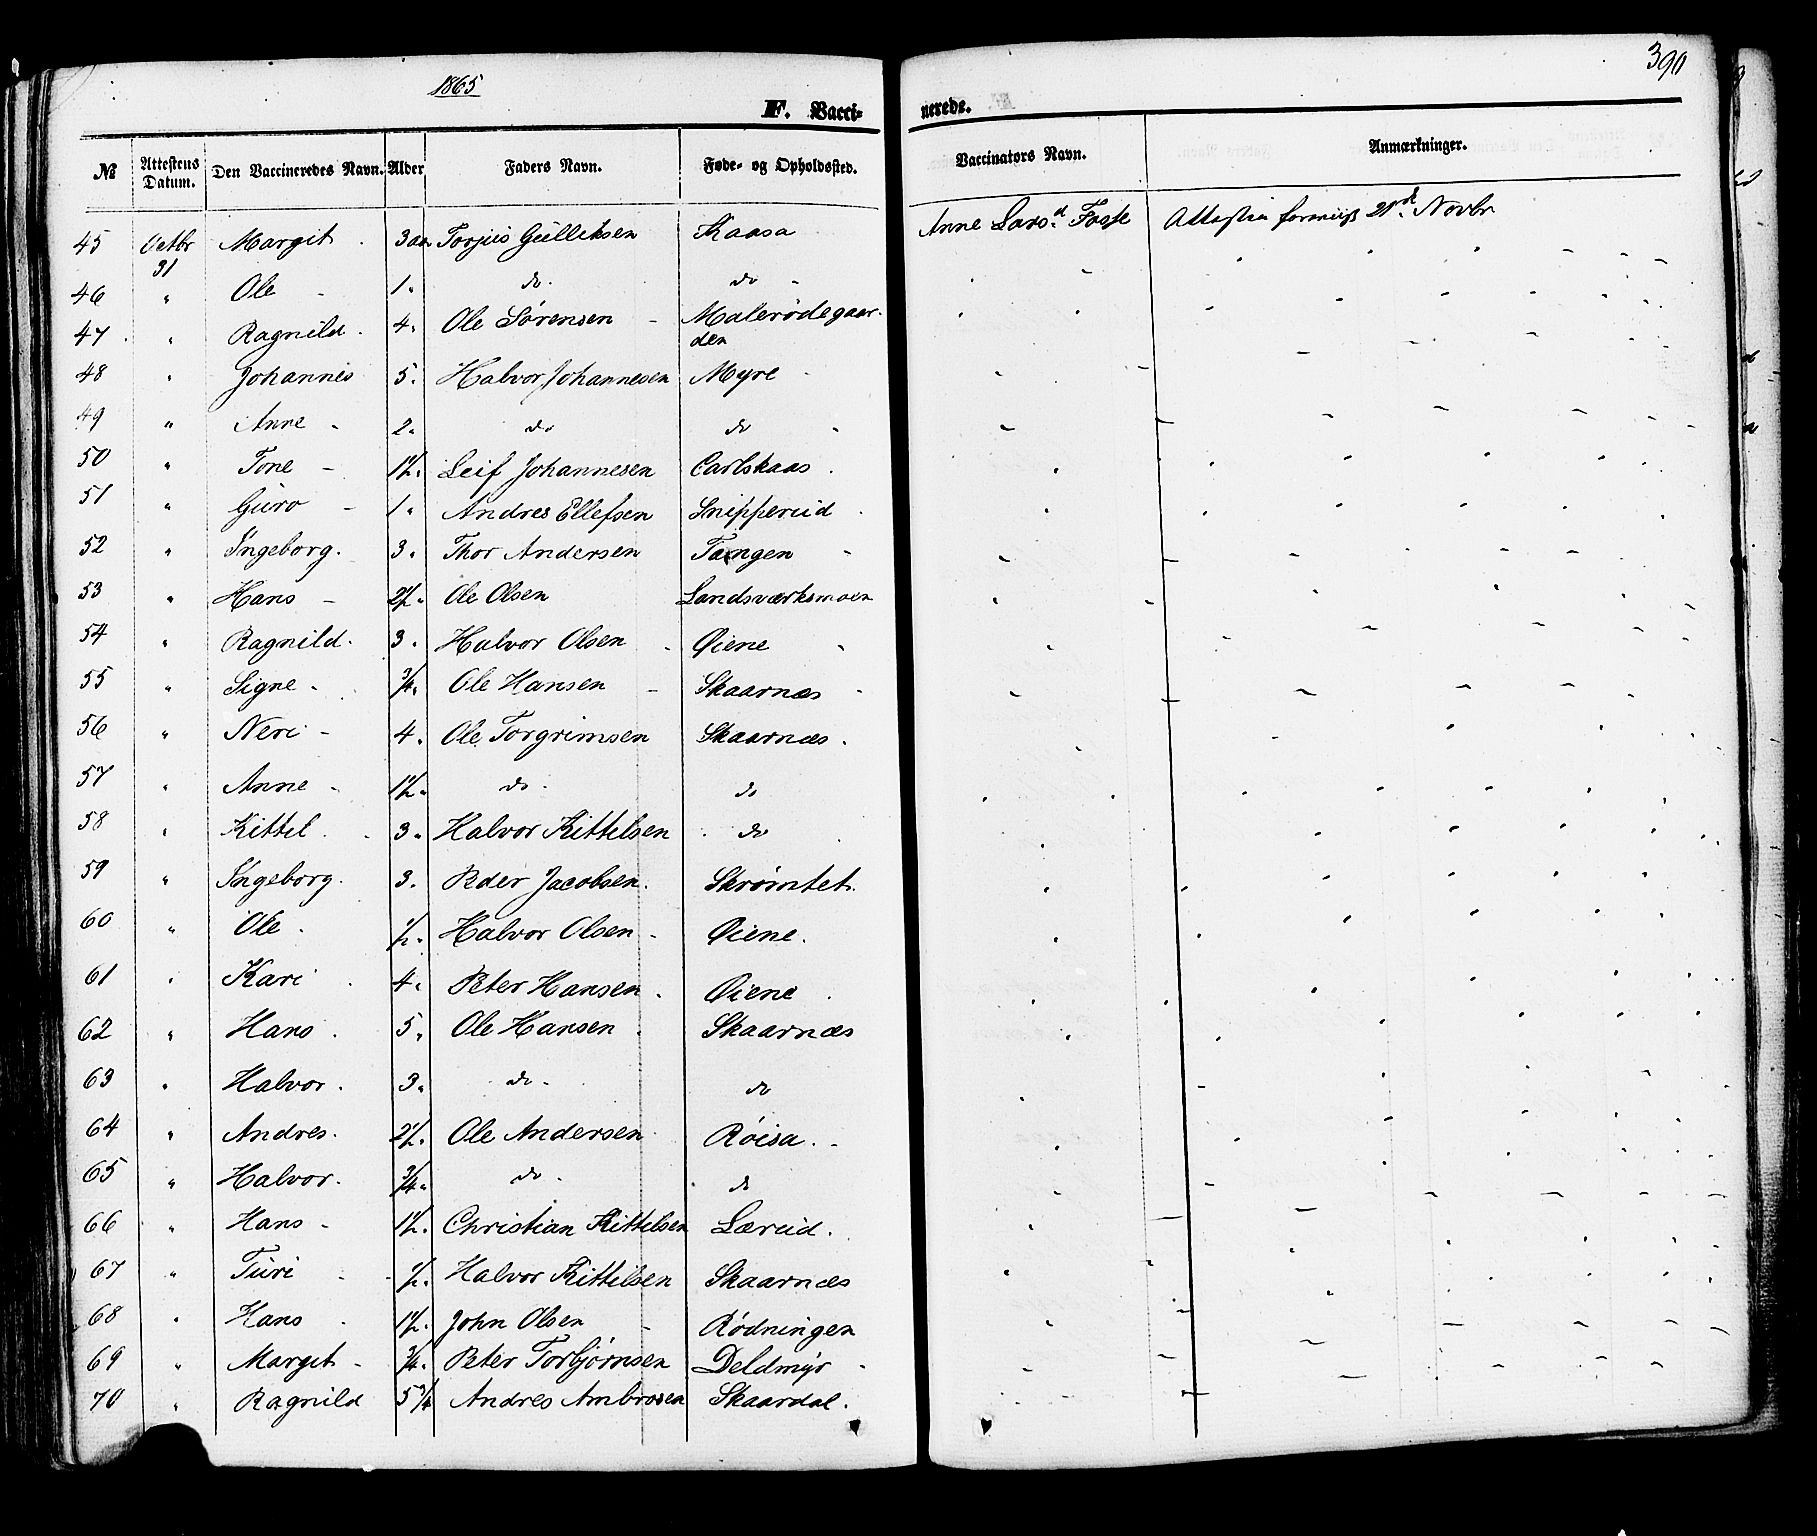 390
1865
F. Vacci- nerede.
№ | Attestens Datum. | Den Vaccineredes Navn. | Alder | Faders Navn. | Føde- og Opholdssted. | Vaccinators Navn. | Anmærkninger.
45 Octbr 31 Margit 3 aar Torjus Gulliksen Kaasa Anne Larsd. 21d. Novbr
46 " Ole 1 do do
47 " Ragnild 4 Ole Sørensen Malerødegaar-
den
48 " Johannes 5 Halvor Johannesen Myre
49 " Anne 2 do do
50 " Tone 1½ Leif Johannesen Carlskaas
51 " Guro 1 Andres Ellefsen Snipperud
52 " Ingeborg 3 Thor Andersen Tangen
53 " Hans 2½ Ole Olsen Landsværksmoen
54 " Ragnild 3 Halvor Olsen Øiene
55 " Signe ¾ Ole Hansen Skaarnæs
56 " Neri 4 Ole Torgrimsen Skaarnæs
57 " Anne 1½ do do
58 " Kittel 3 Halvor Kittelsen do
59 " Ingeborg 3 Peder Jacobsen Skrømtet
60 " Ole ½ Halvor Olsen Øiene
61 " Kari 4 Peter Hansen Øiene
62 " Hans 5 Ole Hansen Skaarnæs
63 " Halvor 3 do do
64 " Andres 2½ Ole Andersen Røisa
65 " Halvor ¾ do do
66 " Hans 1½ Christian Kittelsen Lærud
67 " Turi ½ Halvor Kittelsen Skaarnæs
68 " Hans 1½ John Olsen Rødningen
69 " Margit ¾ Peter Torbjørnsen Deldmyr
70 " Ragnild 5¼ Andres Ambrosen Skaardal